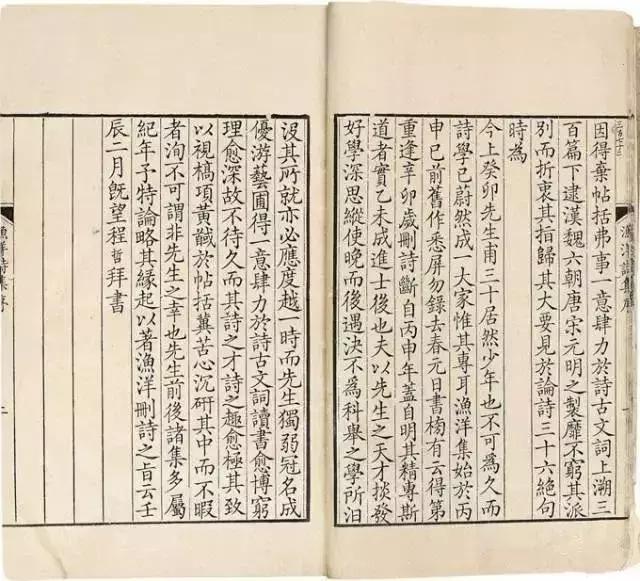 因得棄帖括弗事一意肆力於詩古文詞上溯三
百篇下逮漢魏六朝唐宋元明之製靡不窮其派
別而折衷其指歸其大要見於論詩三十六絕句
時為
今上癸卯先生甫三十居然少年也不可為久而
詩學已蔚然成一大家惟其專耳漁洋集始於丙
申已前舊作悉屏勿錄去春元日書楣有云得第
重逢辛卯歲刪詩斷自丙申年蓋自明其精專斯
道者實乙未成進士後也夫以先生之天才掞發
好學深思縱使晚而後遇決不為科舉之學所汨
沒其所就亦必應度越一時而先生獨弱冠名成
優游藝圃得一意肆力於詩古文詞讀書愈博窮
理愈深故不待久而其詩之才詩之趣愈極其致
以視槁項黃馘於帖括冀苦心沉研其中而不暇
者洵不可謂非先生之幸也先生前後諸集多屬
紀年予特論略其緣起以著漁洋刪詩之旨云壬
辰二月既望程哲拜書
漁洋詩集序
二